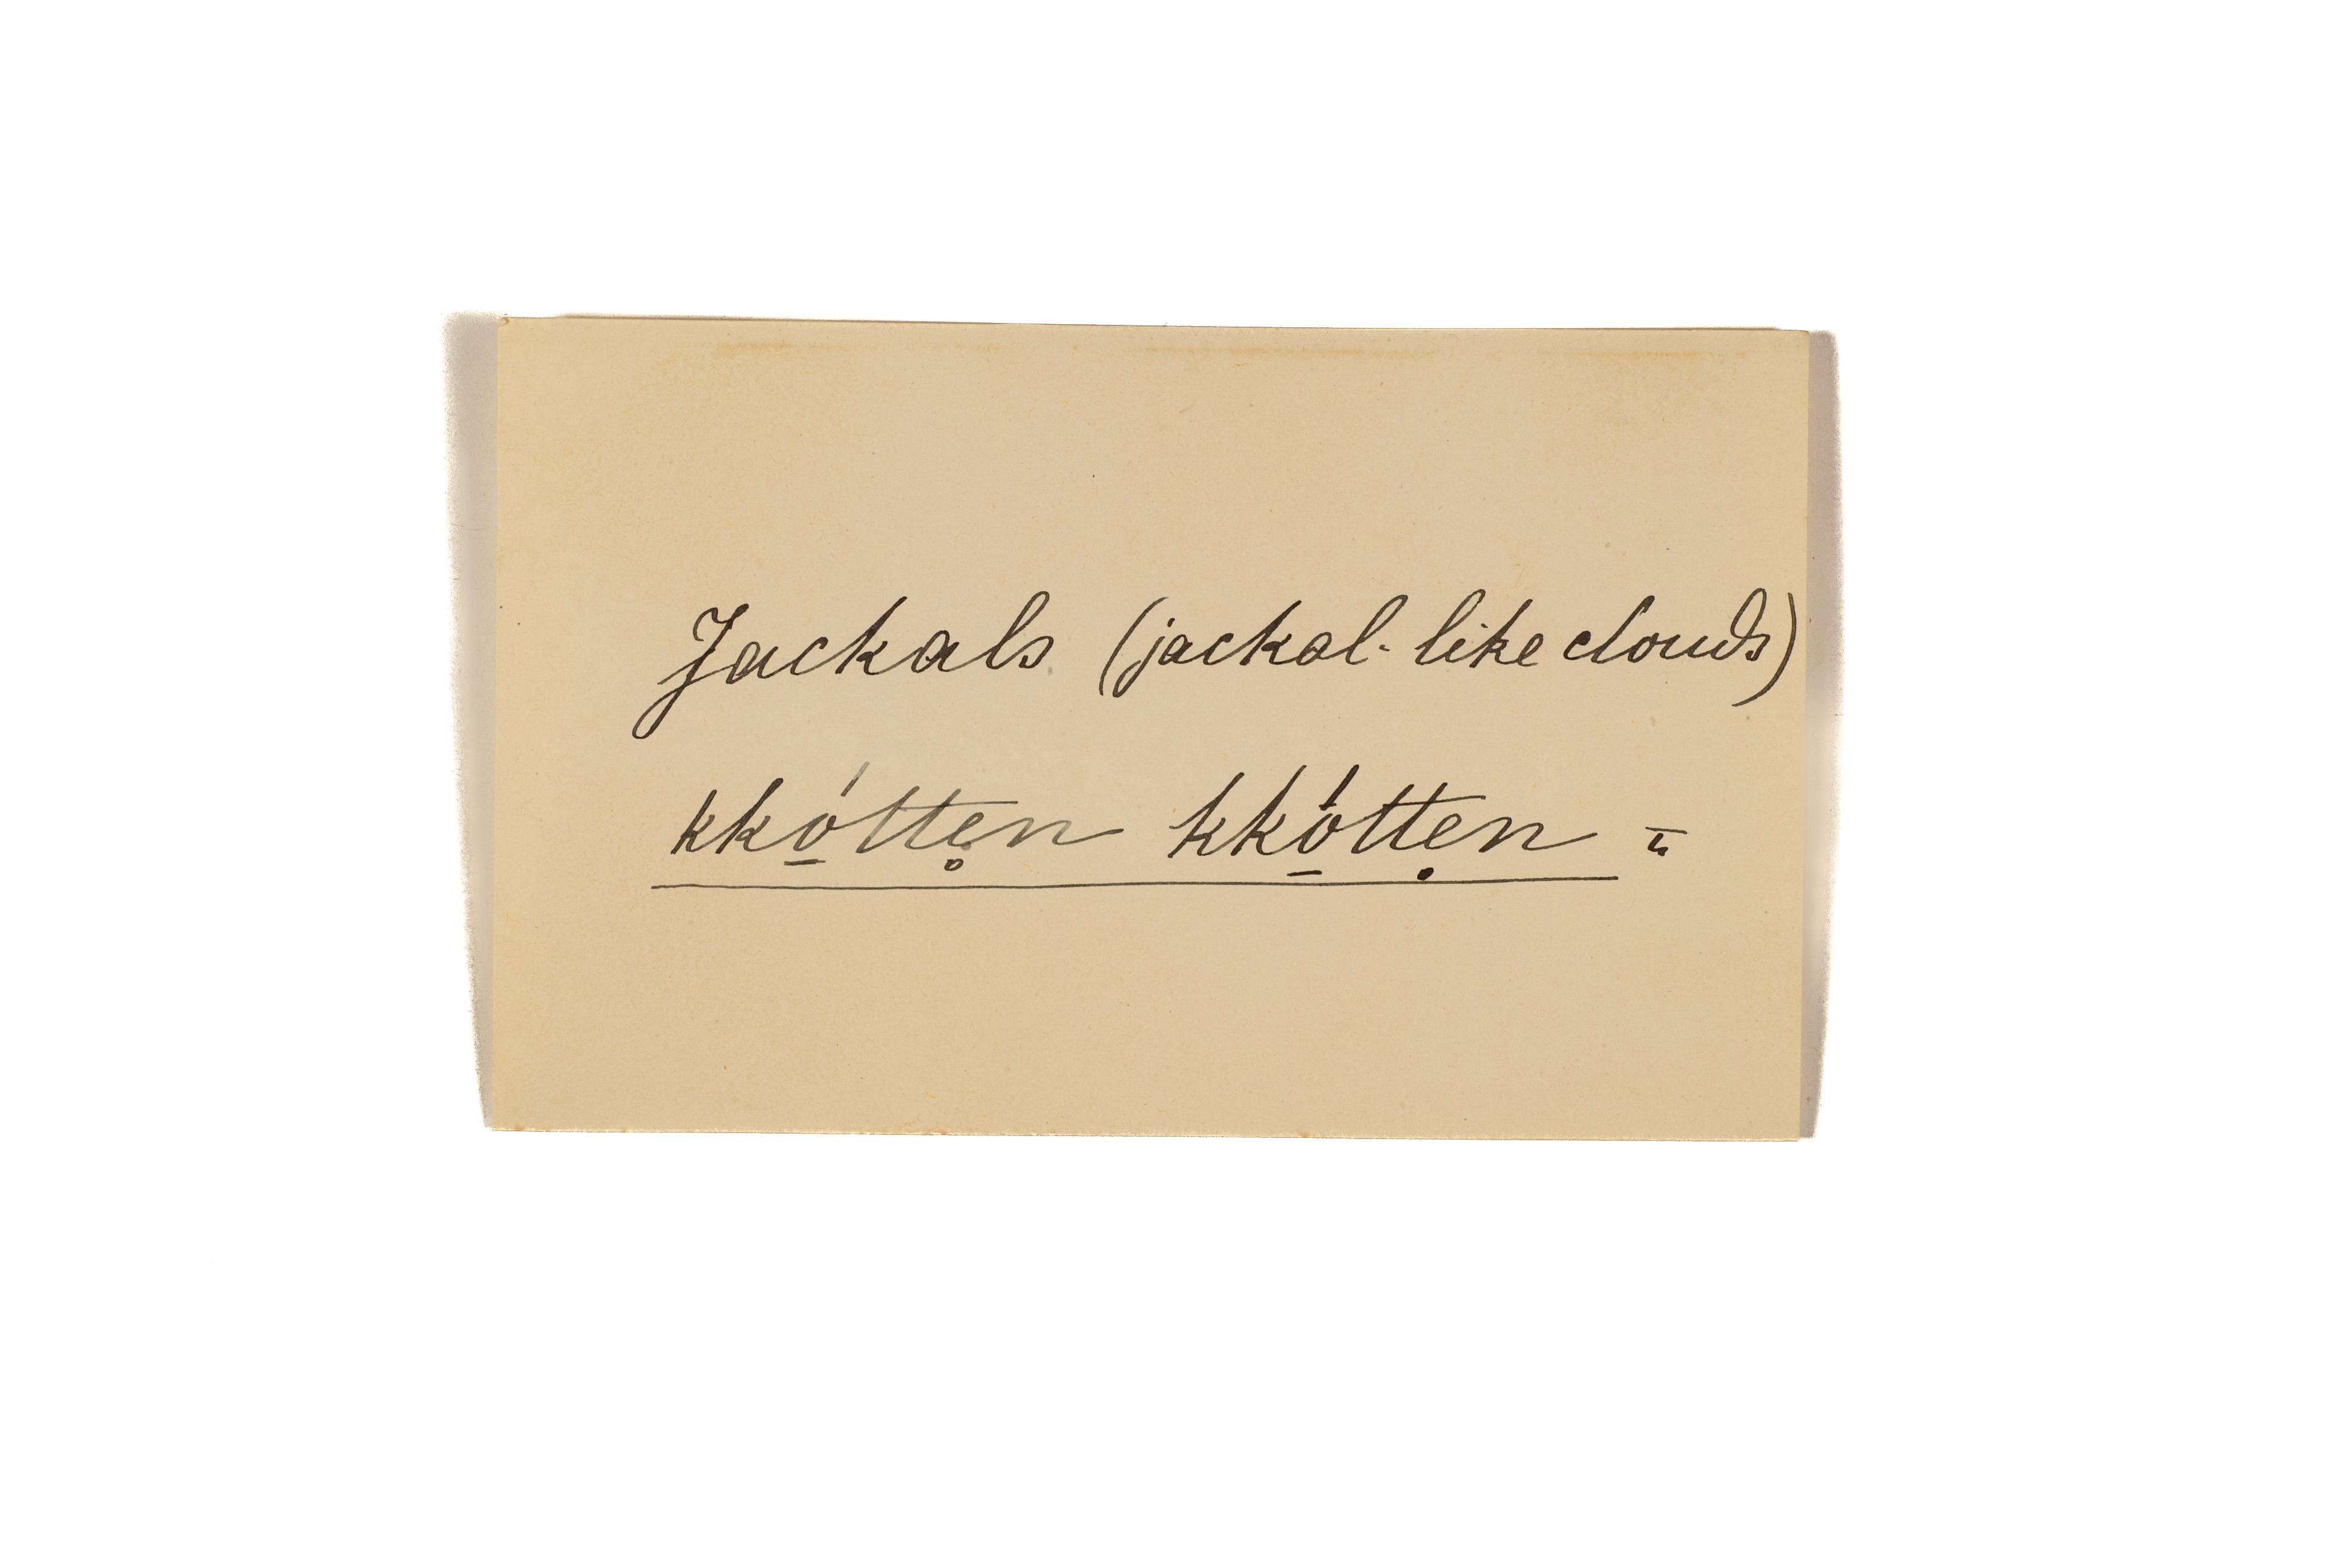 Jackals (jackal-like clouds)
kkó̱ttẹn kkó̱ttẹn =